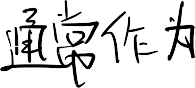 通常作为